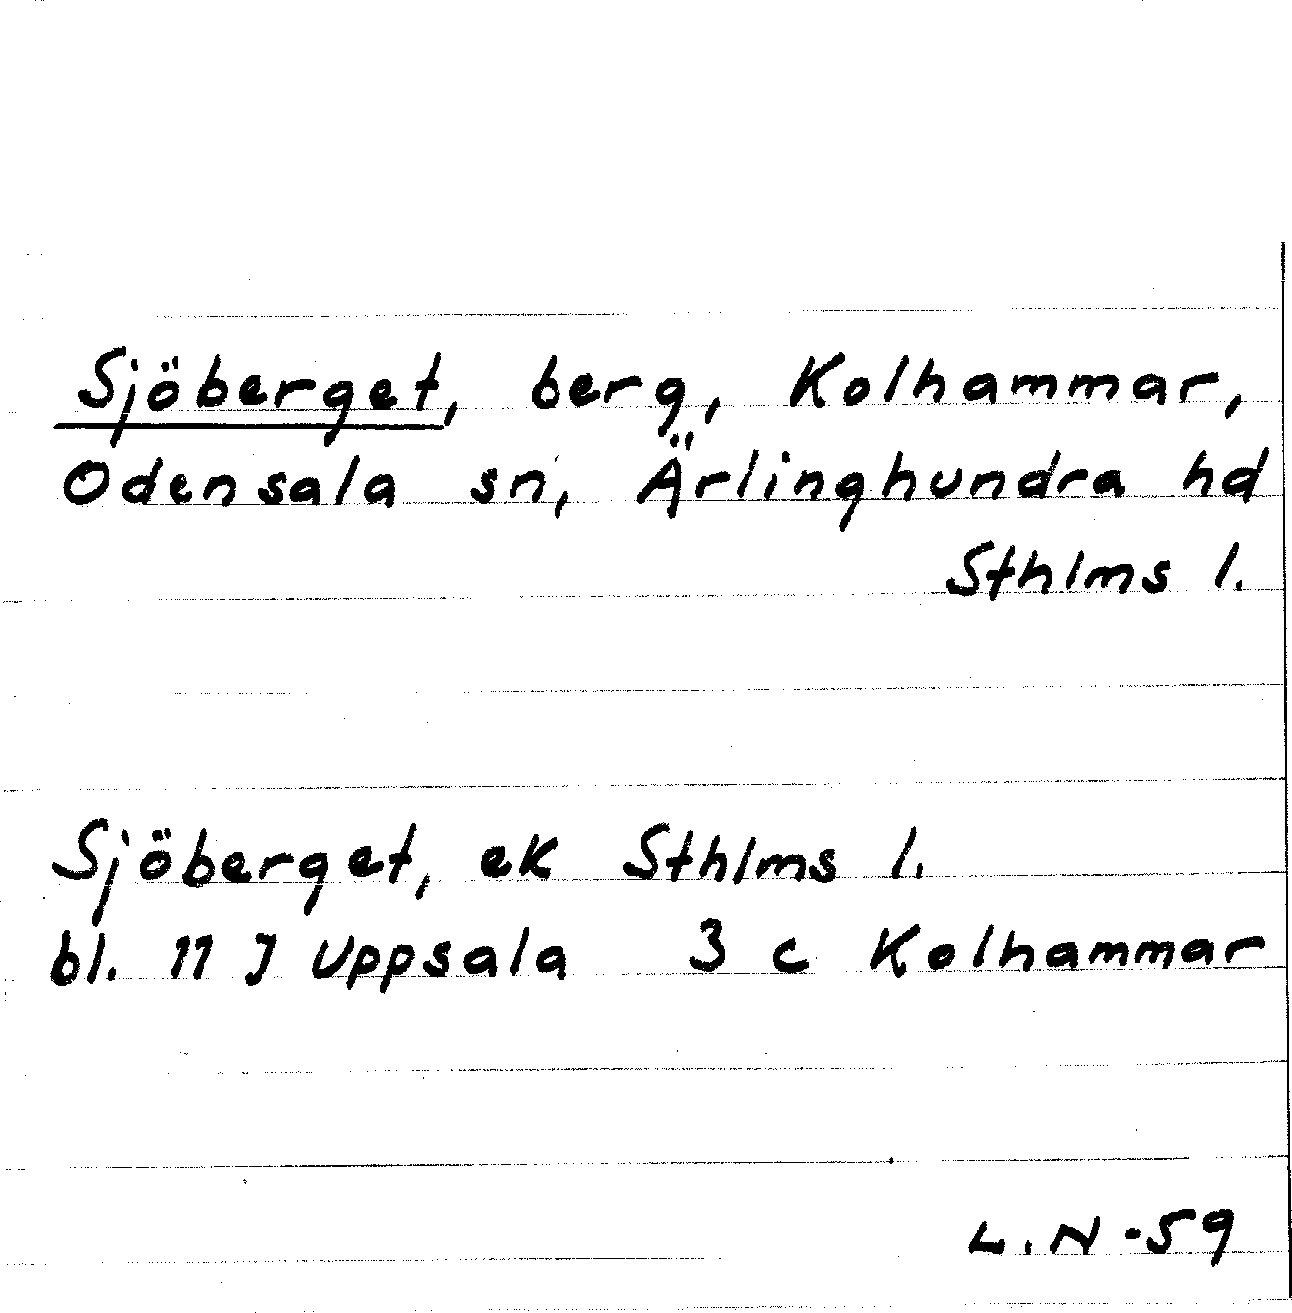 Sjöberget, berg, Kolhammar,
Odensala sn, Ärlinghundra hd
Sthlms l.
Sjöberget, ek Sthlms l.
bl. 11 J Uppsala 3 c Kolhammar
L.N -59